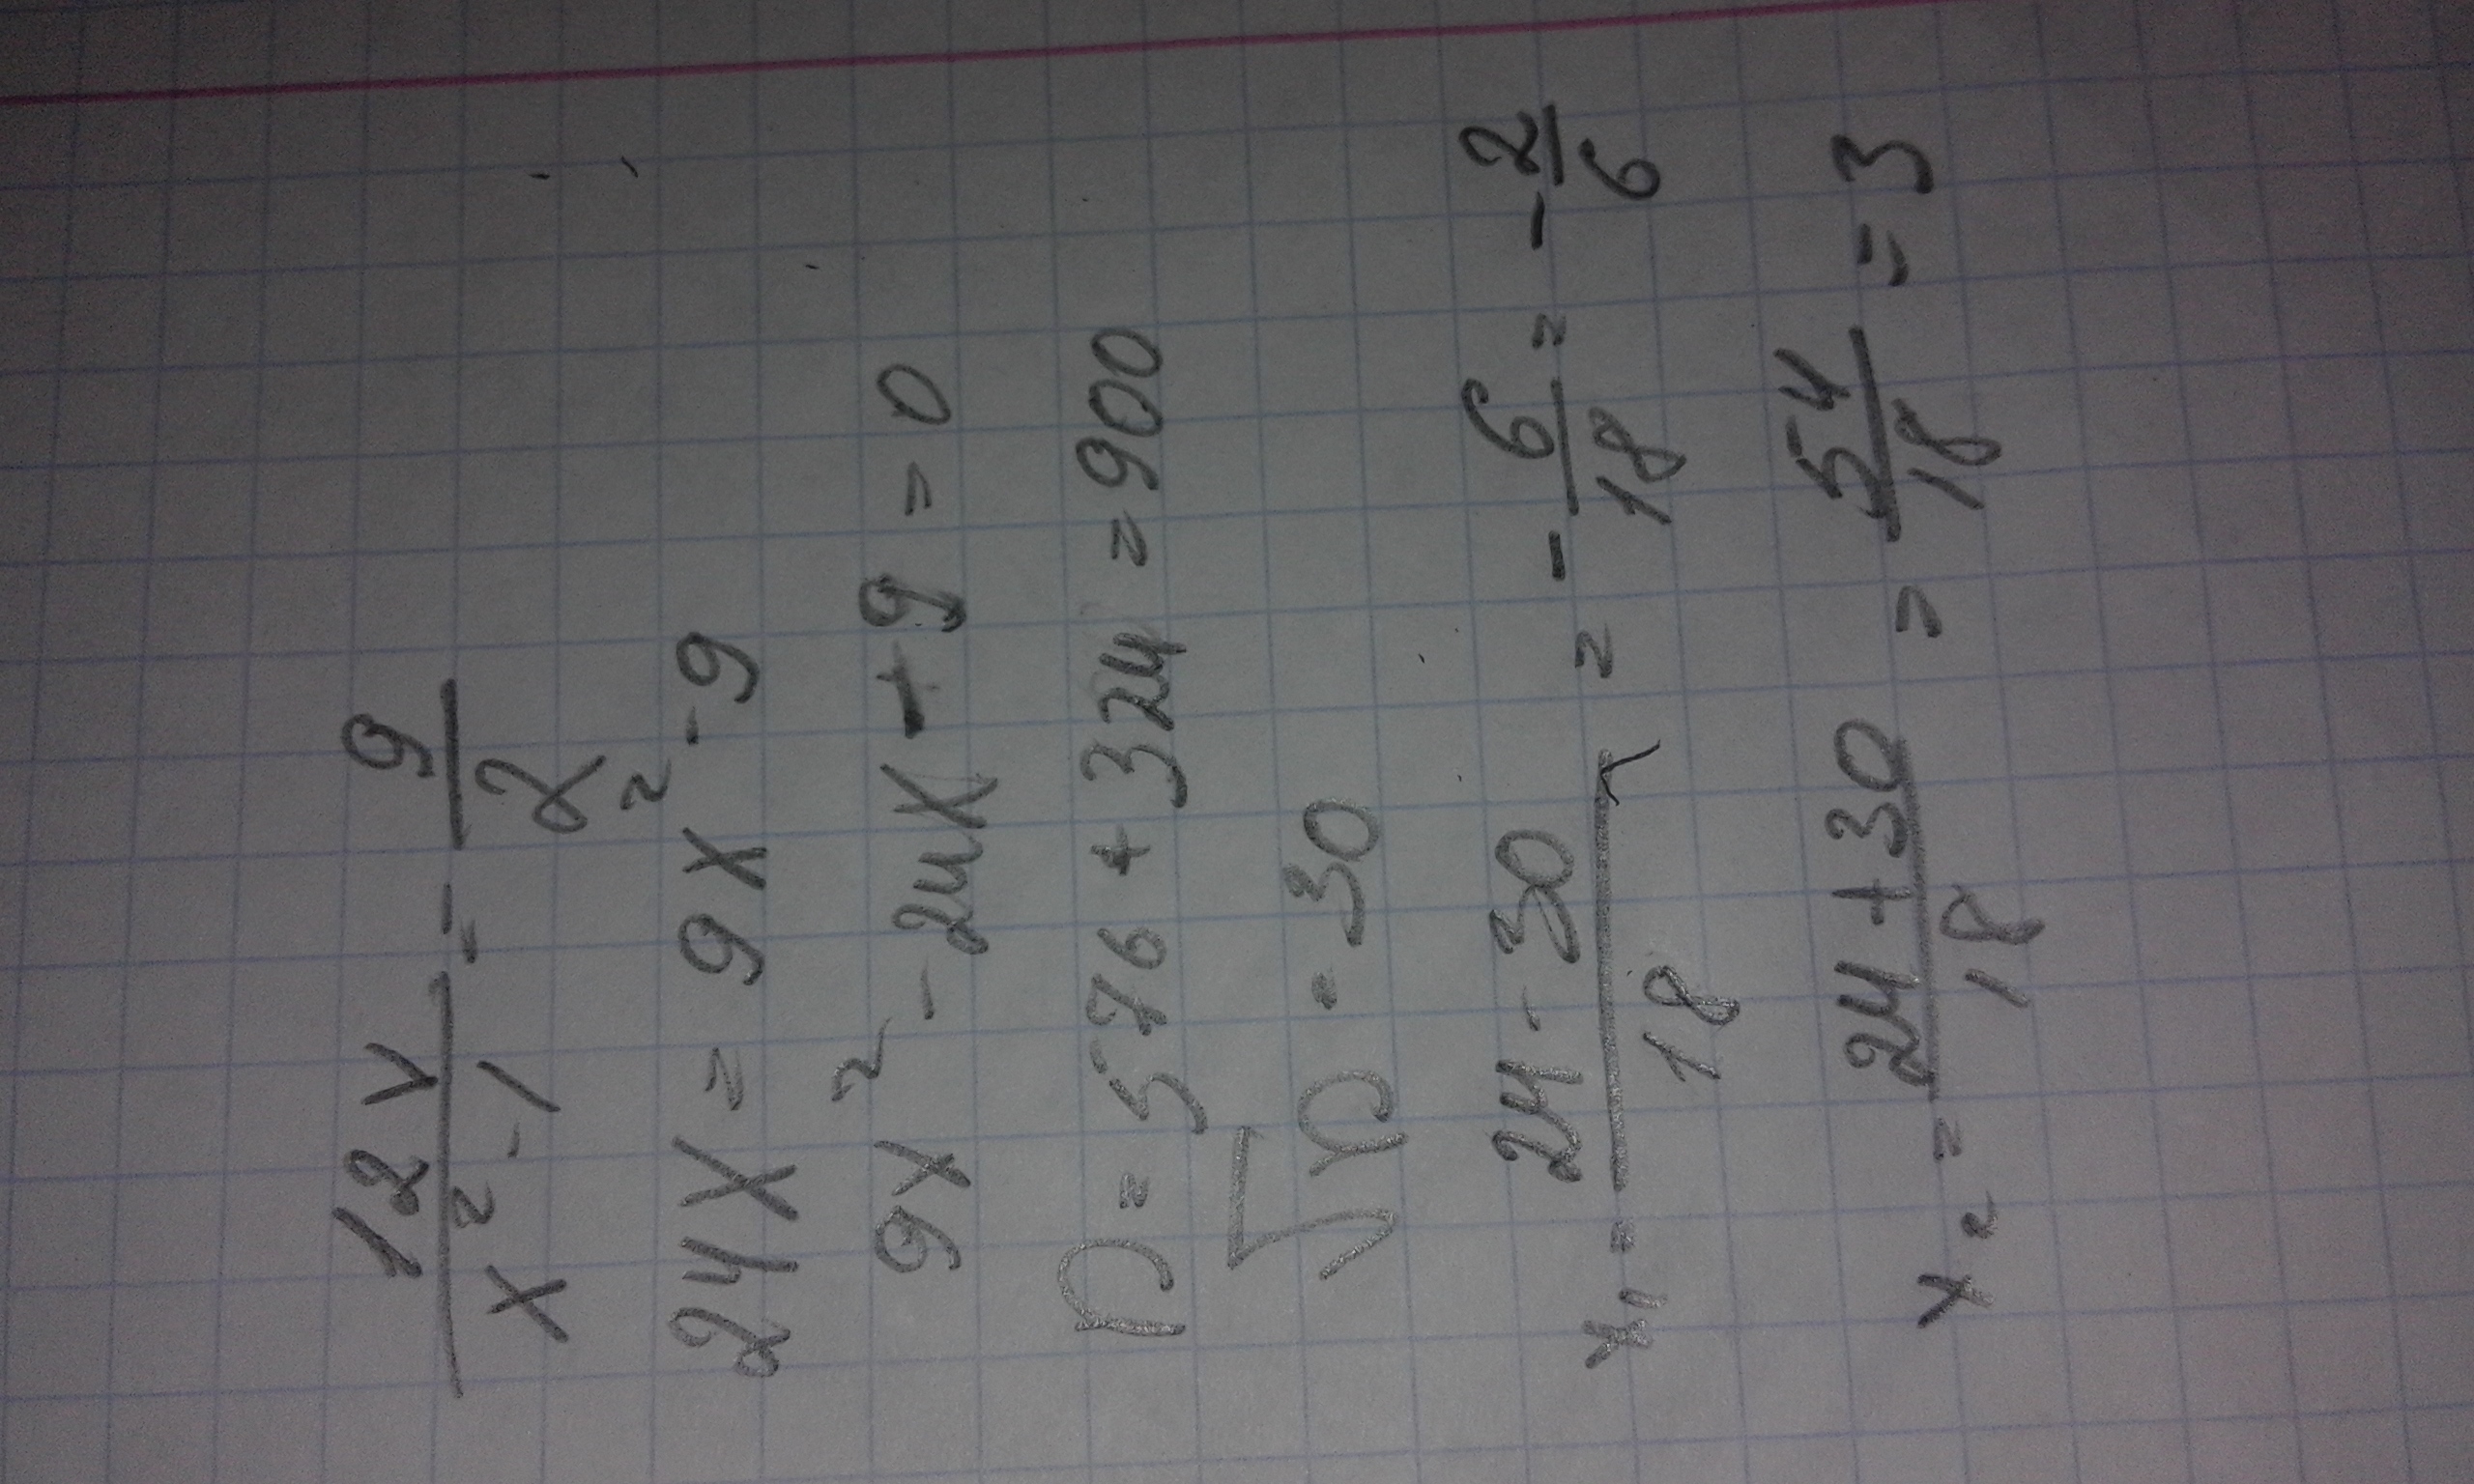 12x/x²-1 = 9/2
24x = 9x² - 9
9x² - 24x - 9 = 0
D = 576 + 324 = 900
√D = 30
x₁ = 24 - 30/18 = - 6/18 = - 2/6
x₂ = 24 + 30/18 = 54/18 = 3